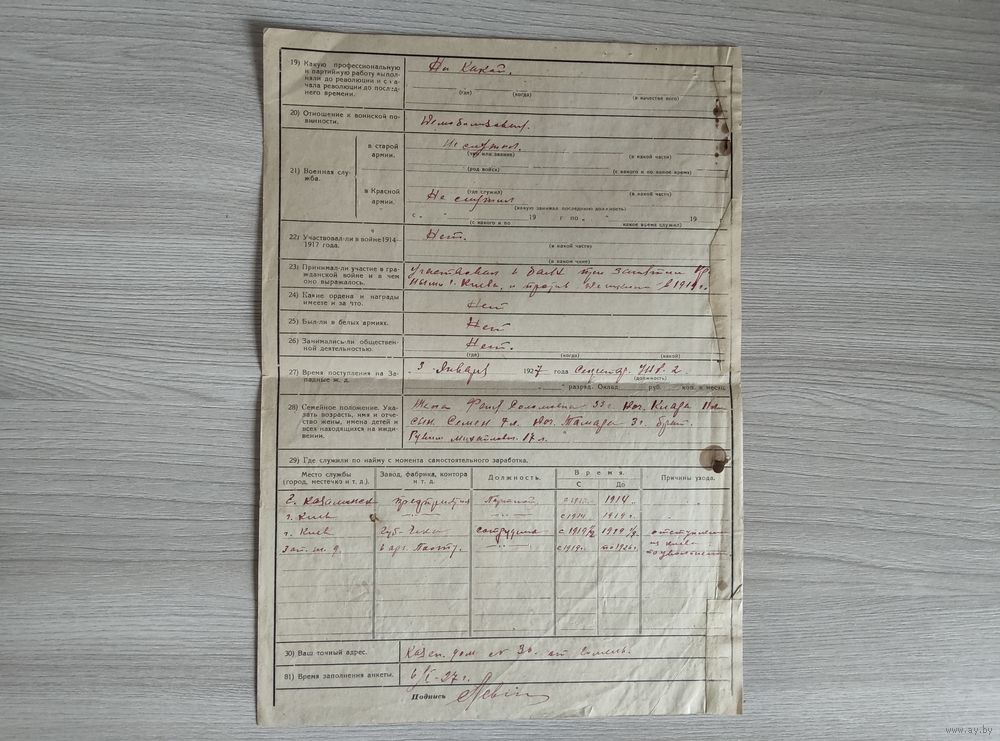 19) Какую профессиональную
и партийную работу выпол-
няли до революции и с на-
чала революции до послед-
него времени.
Ни какой.
(где) (когда) (в качестве кого)
20) Отношение к воинской по-
винности.
21) Военная слу-
жба.
в старой
армии.
Не служил.
(чин или звание) (в какой части)
(род войск) (с какого и по какое время)
в Красной
армии.
(где служил) (в какой части)
Не служил
(какую занимал последнюю должность)
с „ “ 19 г по „ “ 19
(с какого и по какое время служил)
22) Участвовал-ли в войне 1914-
1917 года.
Нет.
(в какой части)
(в каком чине)
23) Принимал-ли участие в гра-
жданской войне и в чем
оно выражалось.
г. Киева, и против в 1919 г.
24) Какие ордена и награды
имеете и за что.
Нет
25) Был-ли в белых армиях.
Нет
26) Занимались-ли обществен-
ной деятельностью.
Нет.
(где) (когда) (какой)
27) Время поступления на За-
падные ж. д.
3 Января 1927 года
(должность)
разряд. Оклад руб. коп. в месяц
28) Семейное положение. Ука-
зать возраст, имя и отче-
ство жены, имена детей и
всех находящихся на ижди-
вении.
Жена Соломовна 33 г. доч. Клара
сын Семен 7 л. доч. Тамара 3 г. брат
Михайлович 17 л.
29) Где служили по найму с момента самостоятельного заработка.
Место службы
(город, местечко и т. д.).
Завод, фабрика, контора
и т. д.
Должность.
Время.
С До
Причины ухода.
1914
г. Киев с 1914 1919 г.
г. Киев сотрудник с 1919 1919
Зап. ж. д. с 1919 г. по 1926 г.
30) Ваш точный адрес.
Казен. дом № 36. ст. Гомель.
31) Время заполнения анкеты.
6/I-27 г.
Подпись Левин
www.ay.by